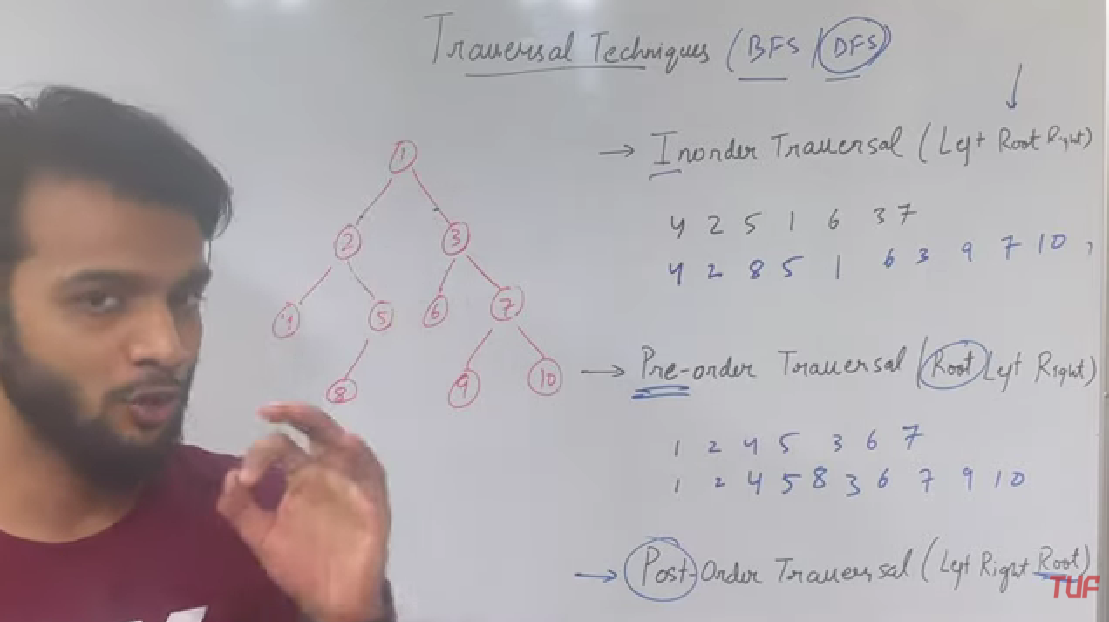 Traversal Techniques (BFS / DFS)
→ Inorder Traversal (Left Root Right)
4 2 5 1 6 3 7
4 2 8 5 1 6 3 9 7 10,
→ Pre-order Traversal (Root Left Right)
1 2 4 5 3 6 7
1 2 4 5 8 3 6 7 9 10
→ Post-Order Traversal (Left Right Root)
TUF
1
2 3
4 5 6 7
8 9 10